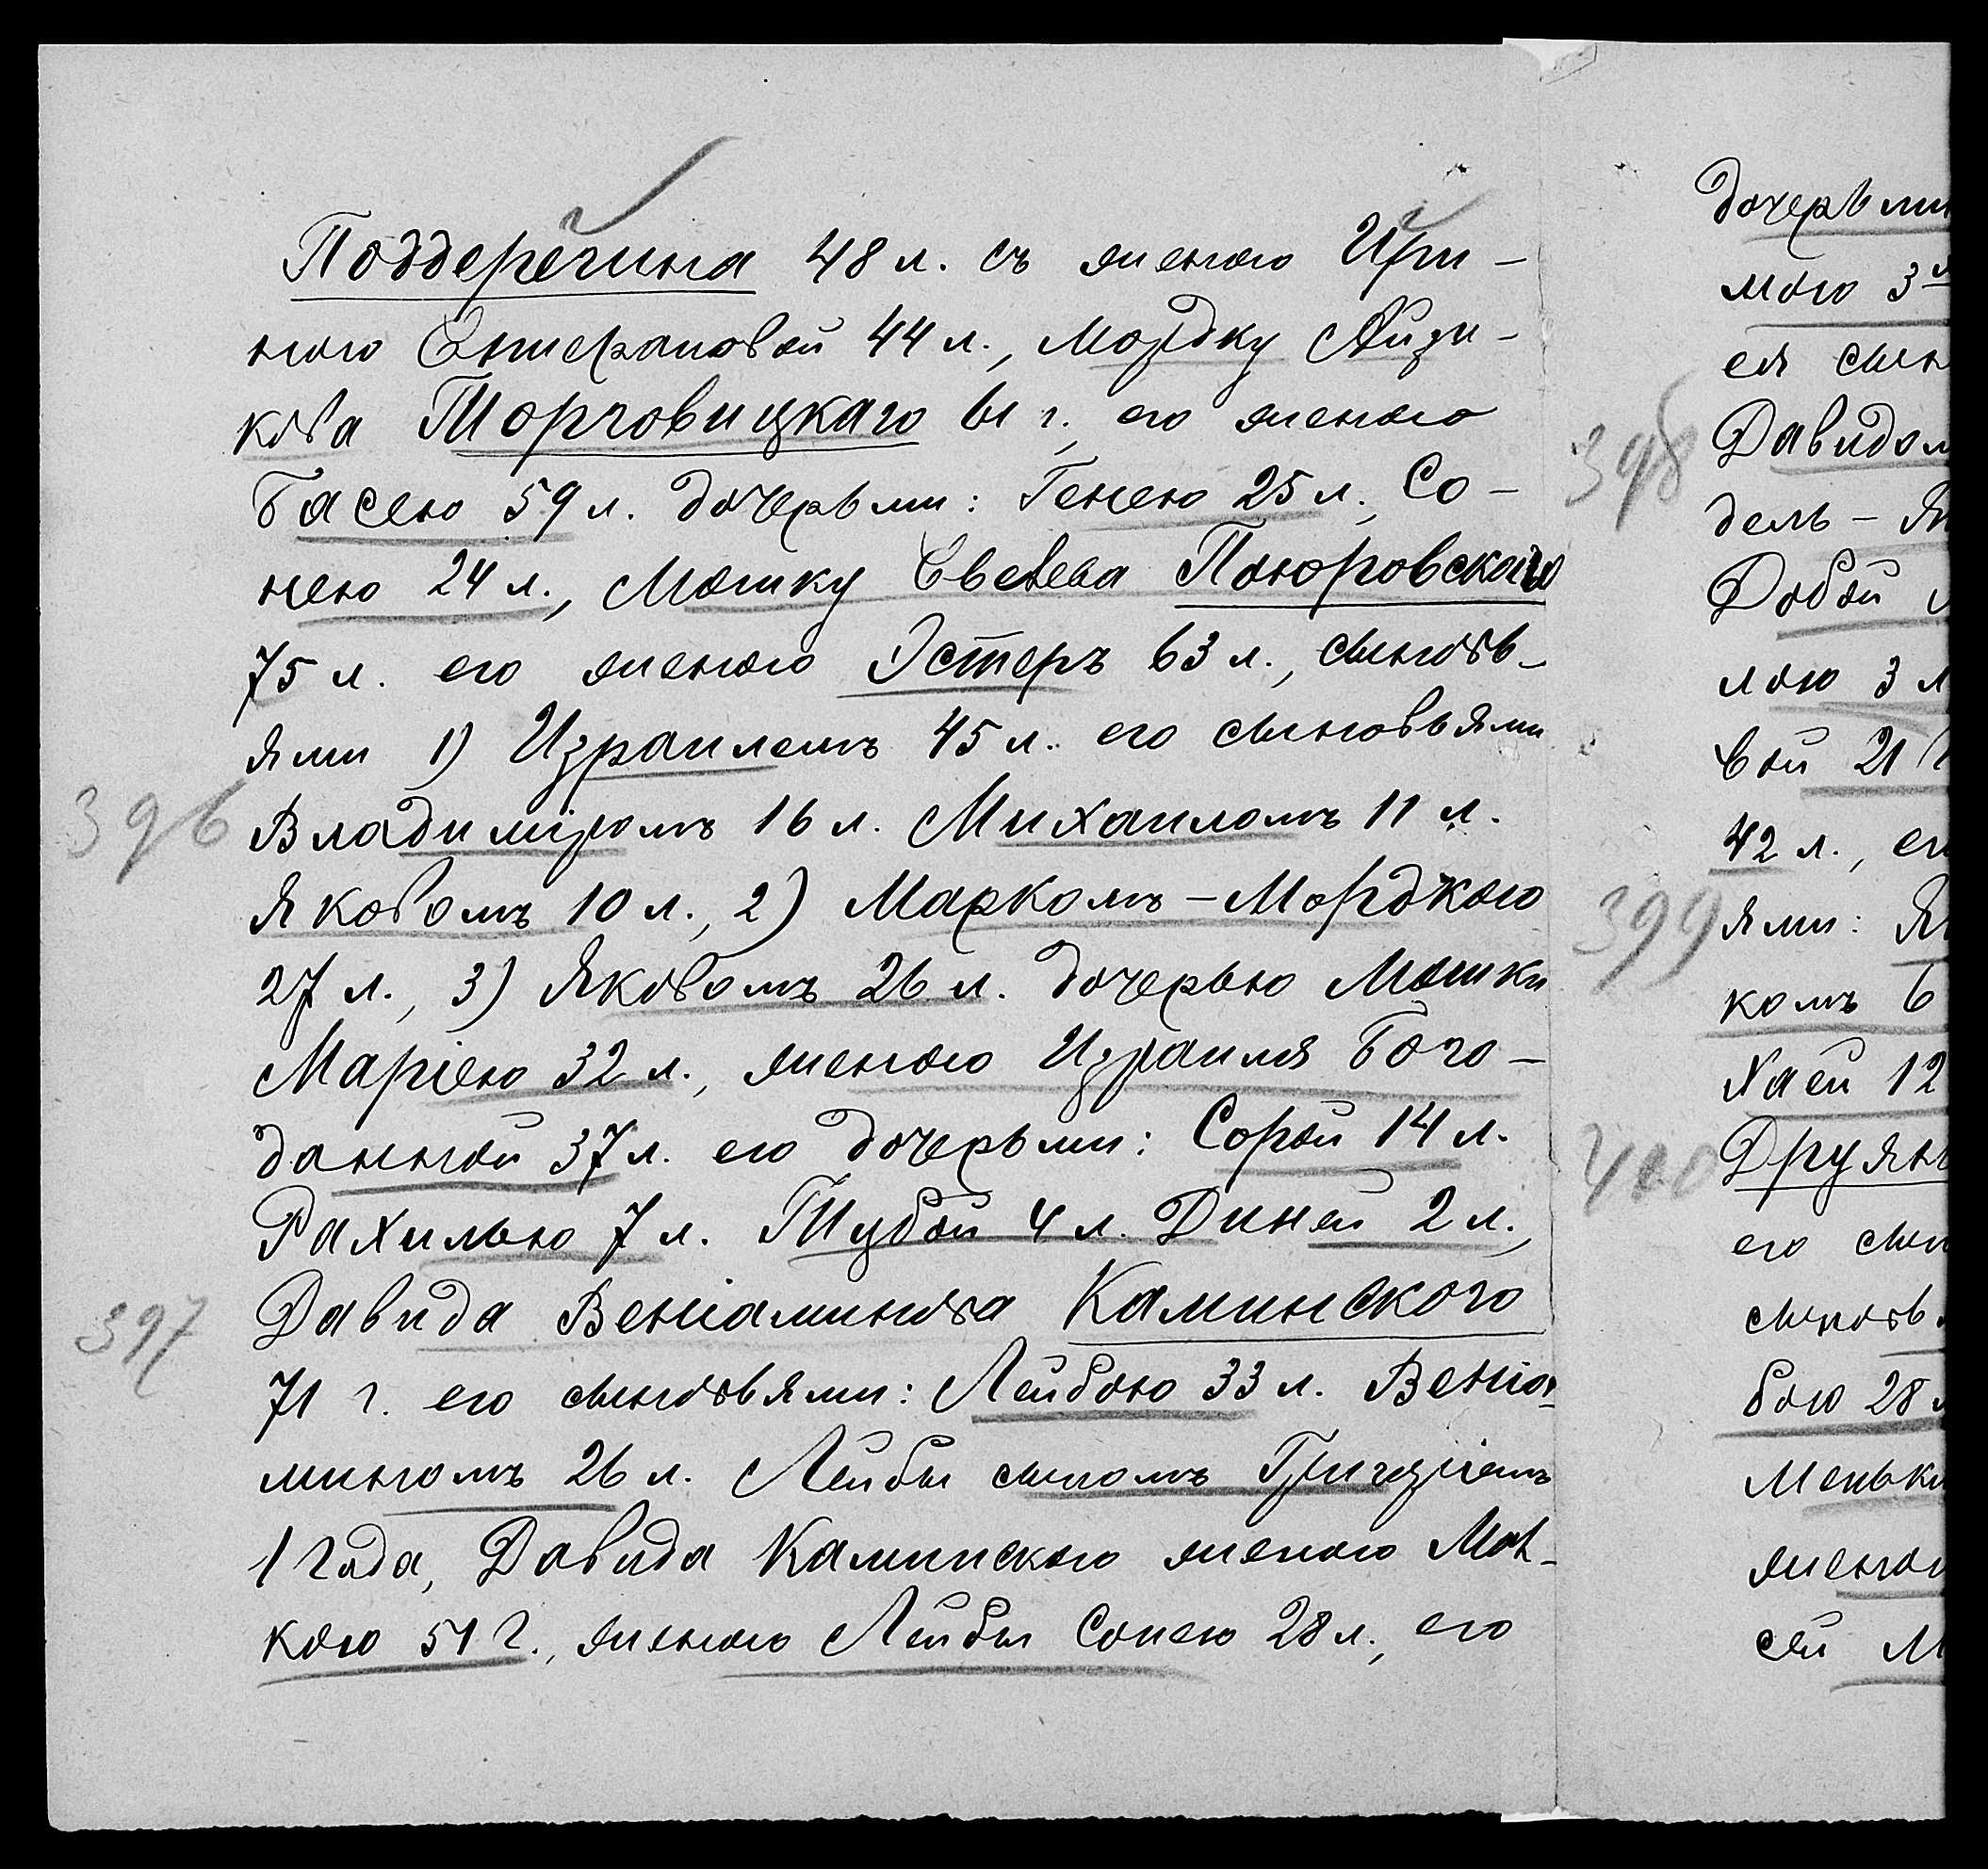 Поддерегина 48 л. съ женою Ири-
ною Онисерамовой 44 л., Мордку Айзи-
кова Торговицкаго 61 г., его женою
Басею 59 л. дочерьми: Генею 25 л., Со-
нею 24 л., Мошку Евсеева Поюровскаго
75 л. его женою Эстеръ 63 л., сыновь-
ями 1) Израилемъ 45 л. его сыновьями
396 Владиміромъ 16 л. Михаиломъ 11 л.
Яковомъ 10 л., 2) Маркомъ-Мордкою
27 л., 3) Яковомъ 26 л. дочерью Мошки
Маріею 32 л., женою Израиля Бого-
данной 37 л. его дочерьми: Сорой 14 л.
Рахилью 7 л. Тубой 4 л. Диней 2 л.,
397 Давида Веніаминова Каминского
71 г. его сыновьями: Лейбою 33 л. Веніа-
миномъ 26 л. Лейбы сыномъ Григоріемъ
1 года, Давида Каминского женою
кою 51 г., женою Лейбы Сонею 28 л., его
дочерьми
мою 3 л
ея сын
398 Давидом
дель-Ян
Добой
лою 3 л
вой 21
42 л., ег
399 ями: Я
комъ 6
Хаей 12
400 Друян
его сын
сыновь
бою 28 л
Меньки
женою
сей М